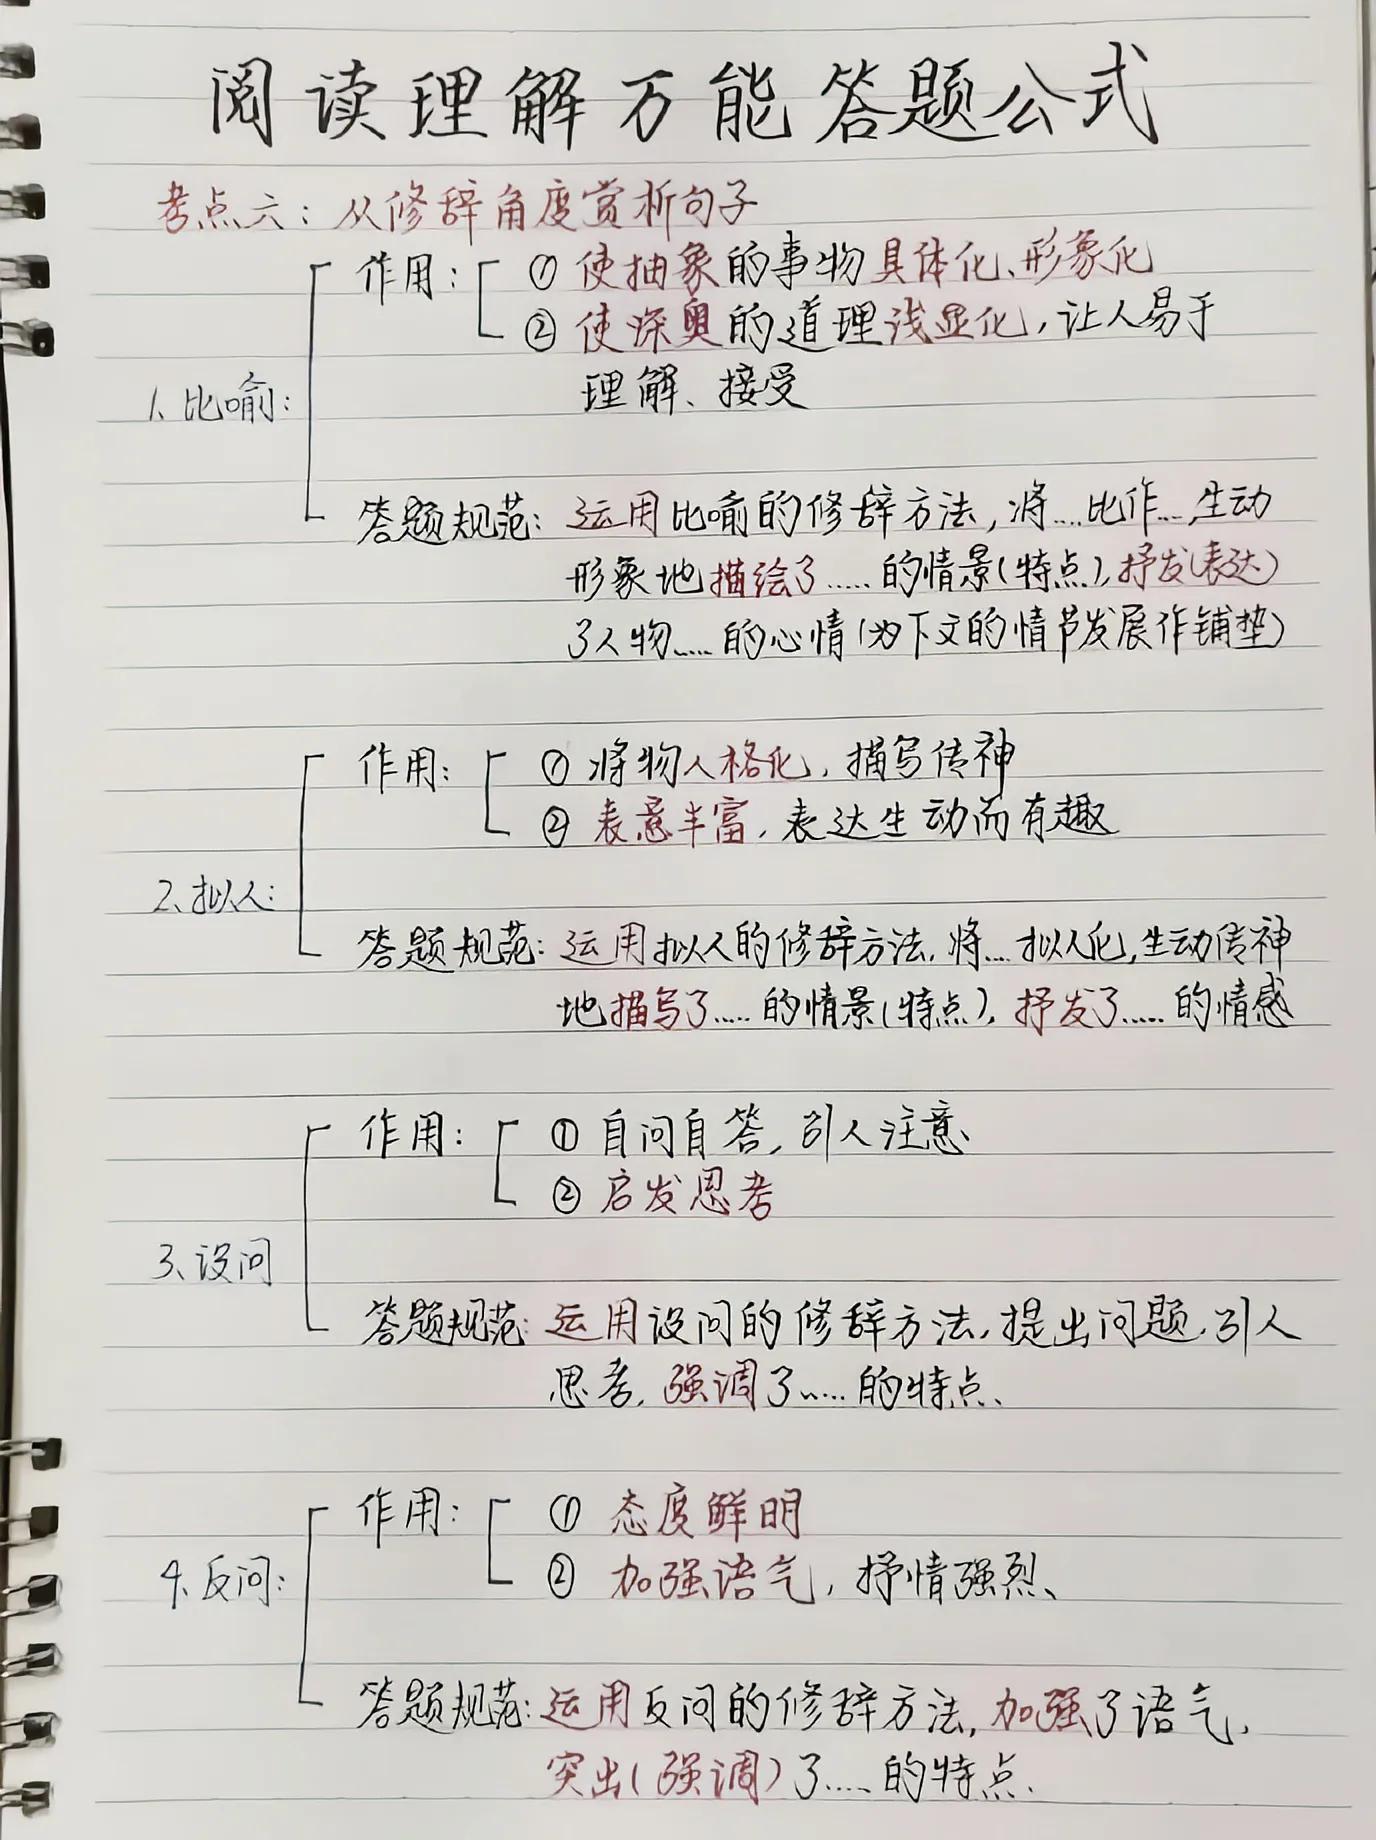 阅读理解万能答题公式
考点六：从修辞角度赏析句子
作用：① 使抽象的事物具体化、形象化
② 使深奥的道理浅显化，让人易于
理解、接受
1、比喻：
答题规范：运用比喻的修辞方法，将……比作……，生动
形象地描绘了……的情景（特点），抒发（表达）
了人物……的心情（为下文的情节发展作铺垫）
作用：① 将物人格化，描写传神
② 表意丰富，表达生动而有趣
2、拟人：
答题规范：运用拟人的修辞方法，将……拟人化，生动传神
地描写了……的情景（特点），抒发了……的情感
作用：① 自问自答，引人注意、
② 启发思考
3、设问
答题规范：运用设问的修辞方法，提出问题，引人
思考，强调了……的特点、
作用：① 态度鲜明
② 加强语气，抒情强烈、
4、反问：
答题规范：运用反问的修辞方法，加强了语气，
突出（强调）了……的特点.